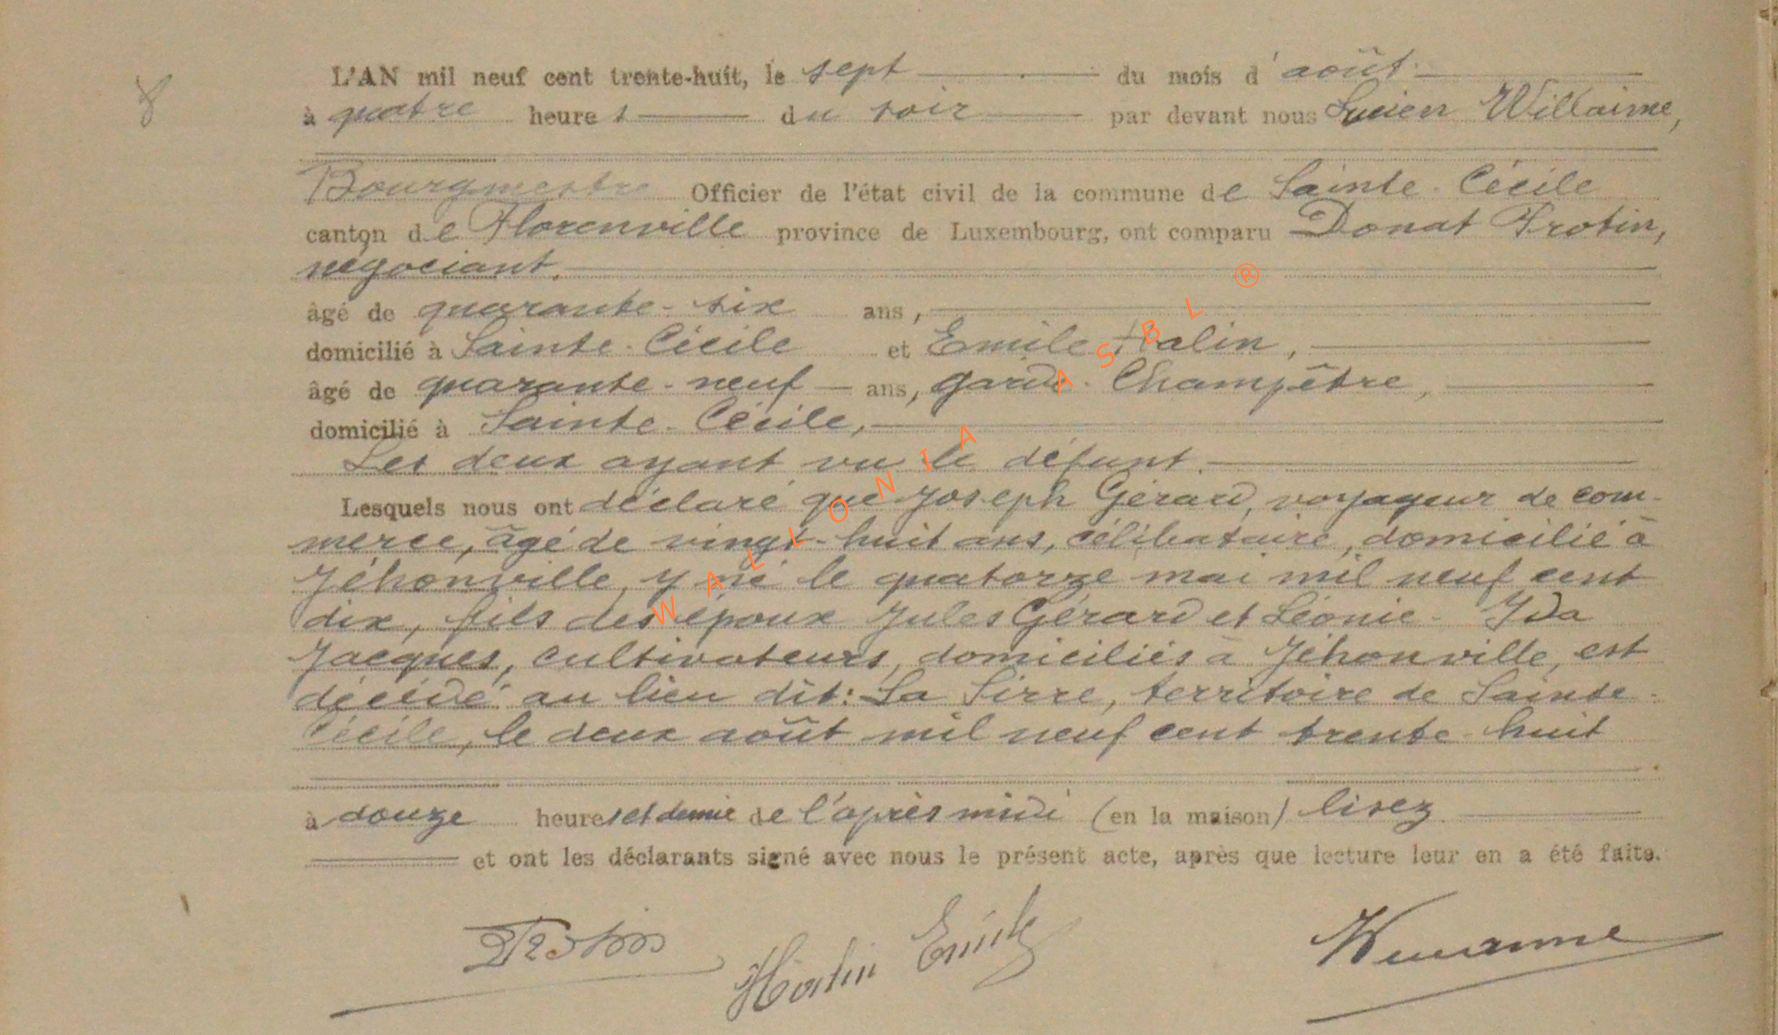 8
L'AN mil neuf cent trente-huit, le sept du mois d'août
à quatre heures du soir par devant nous Lucien Willaime,
Bourgmestre Officier de l'état civil de la commune de Sainte-Cécile
canton de Florenville province de Luxembourg, ont comparu Donat Protin,
négociant,
âgé de quarante-six ans,
domicilié à Sainte-Cécile et Emile Halin,
âgé de quarante-neuf ans, garde-Champêtre,
domicilié à Sainte-Cécile,
Les deux ayant vu le défunt.
Lesquels nous ont déclaré que Joseph Gérard, voyageur de com-
merce, âgé de vingt-huit ans, célibataire, domicilié à
Jéhonville, y né le quatorze mai mil neuf cent
dix, fils des époux Jules Gérard et Léonie-Ida
Jacques, cultivateurs, domiciliés à Jéhonville, est
décédé au lieu dit: La Sirre, territoire de Sainte-
Cécile, le deux août mil neuf cent trente-huit
à douze heures et demie de l'après midi (en la maison) lisez
et ont les déclarants signé avec nous le présent acte, après que lecture leur en a été faite.
DProtin Halin Emile Willaime
WALLONIA ASBL ®